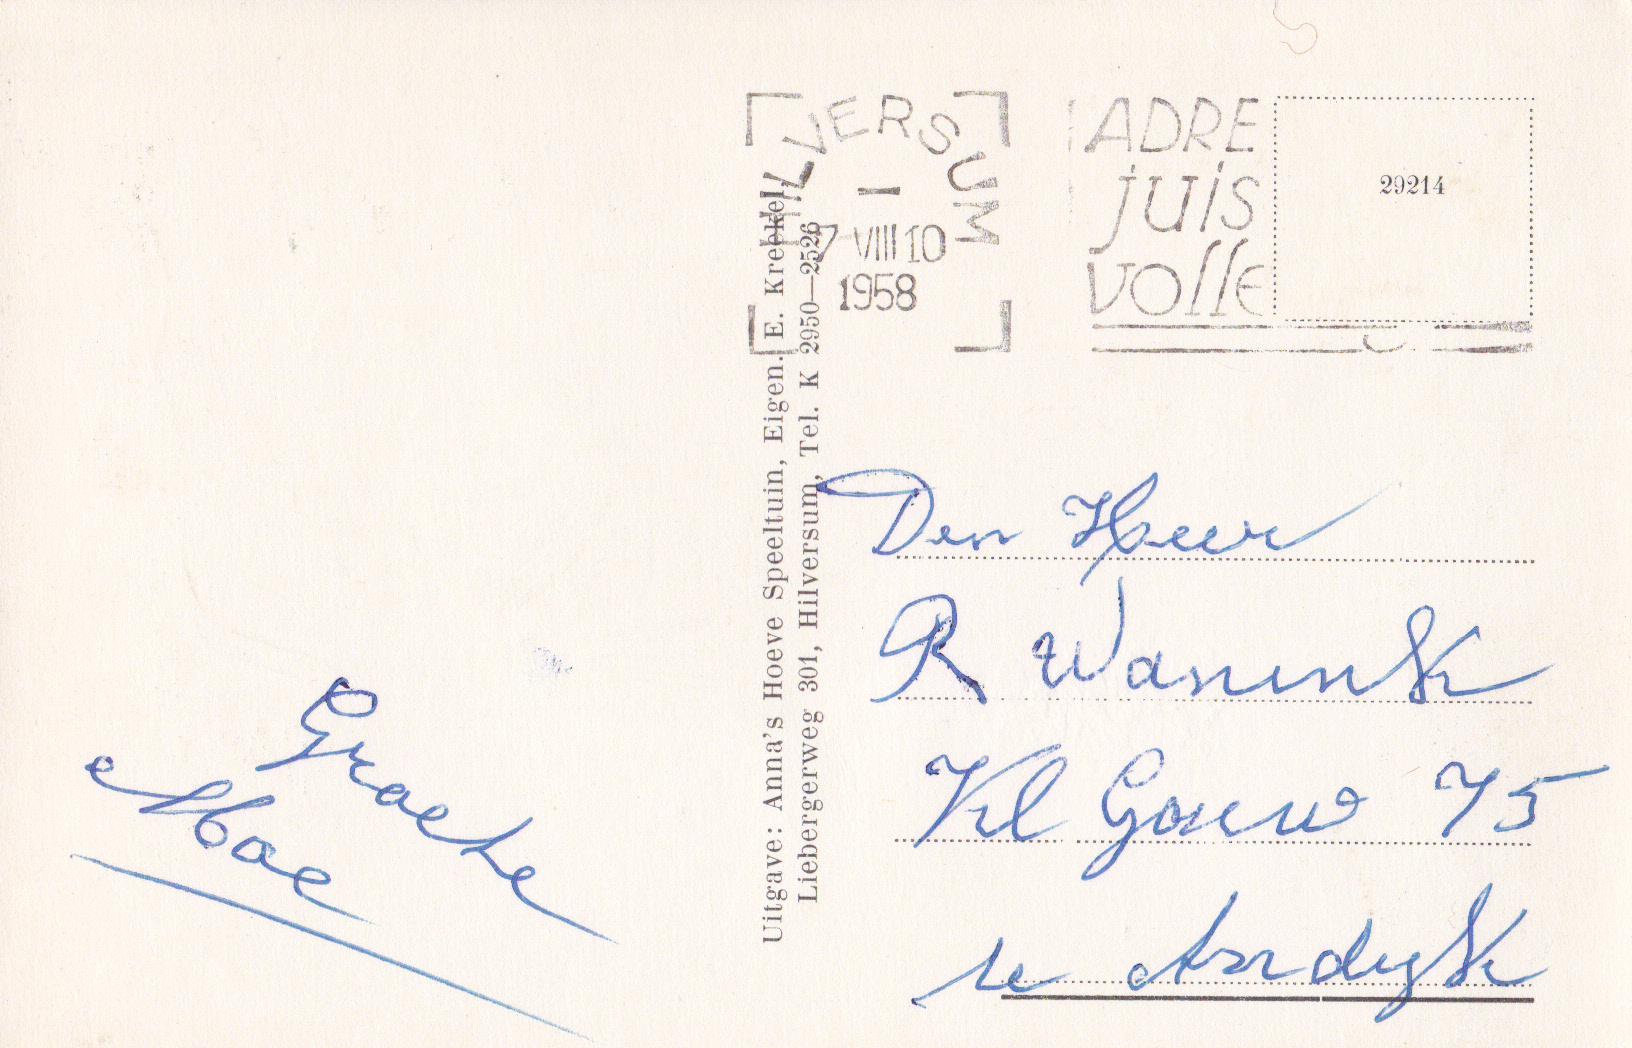 HILVERSUM
7 VIII 10
1958
ADRE
juis
volle
29214
Uitgave: Anna's Hoeve Speeltuin, Eigen. E. Krekel,
Liebergerweg 301, Hilversum, Tel. K 2950—2526
Den Heer
R Wanink
Kl Gouw 75
te Andyk
Groete
Moe